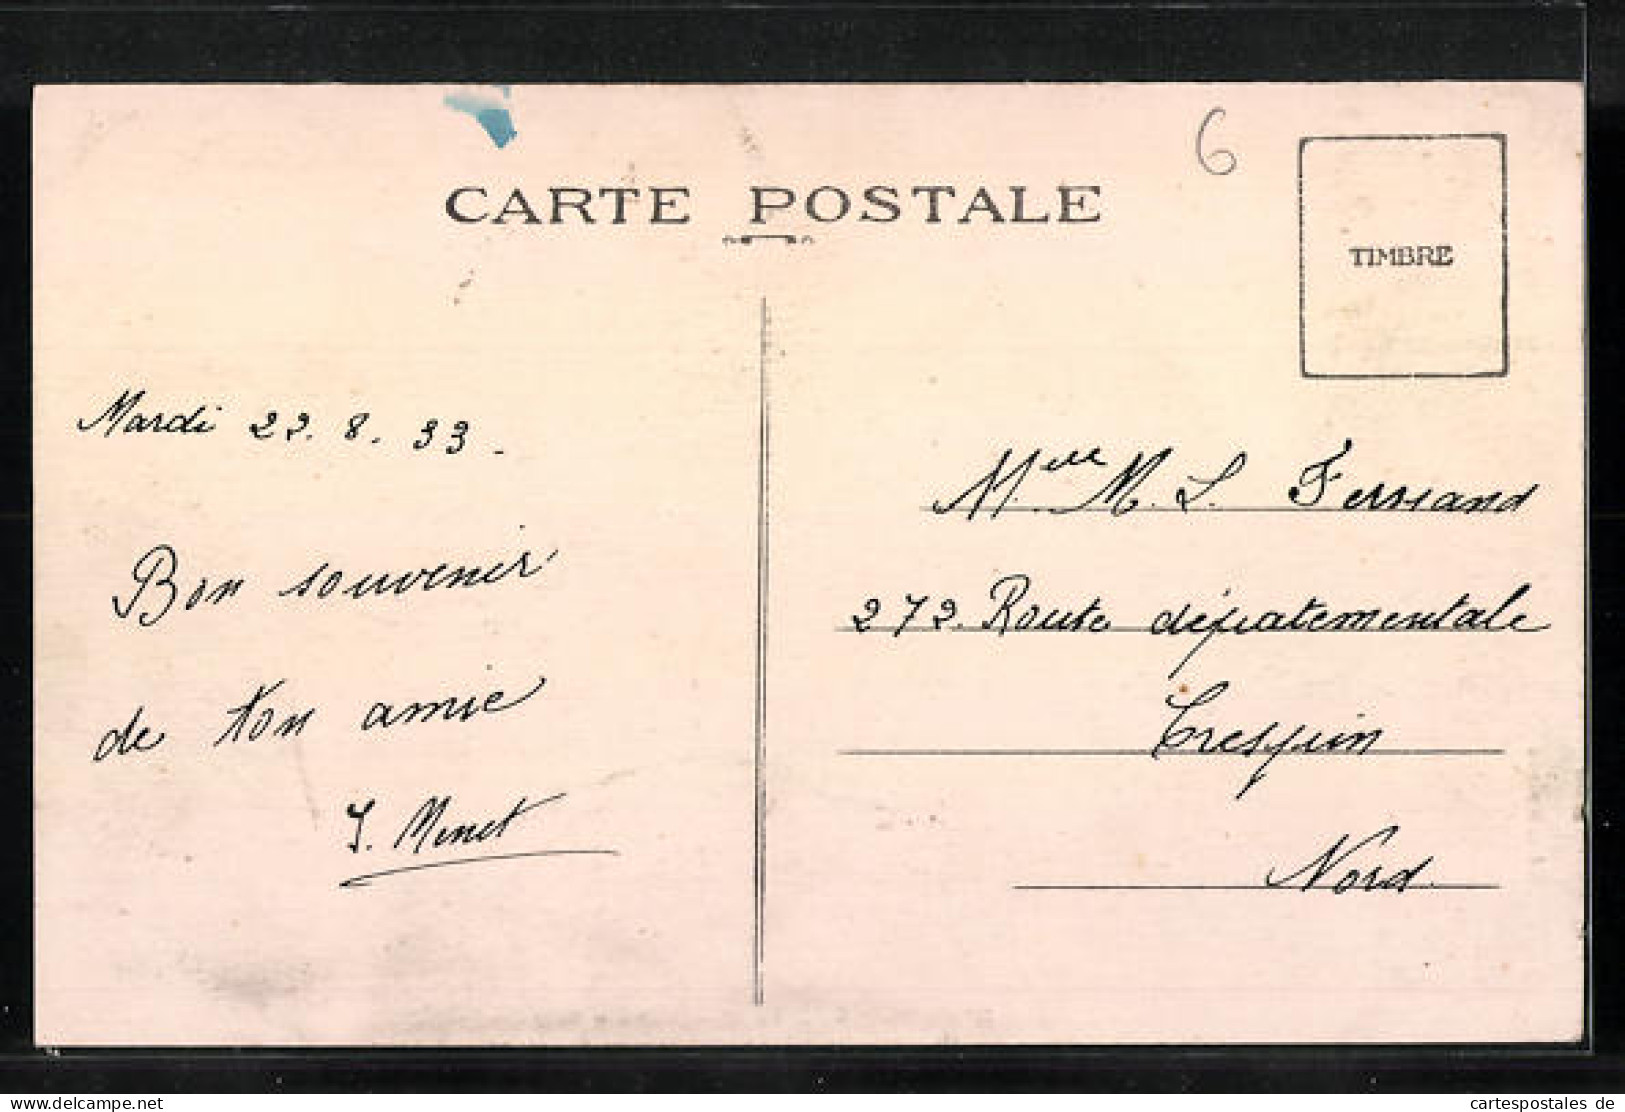 6
CARTE POSTALE
TIMBRE
Mardi 22.8.33.
Bon souvenir
de ton amie
Y. Menet
Melle M. L. Fernand
272. Route départementale
Crespin
Nord.
cartespostales de